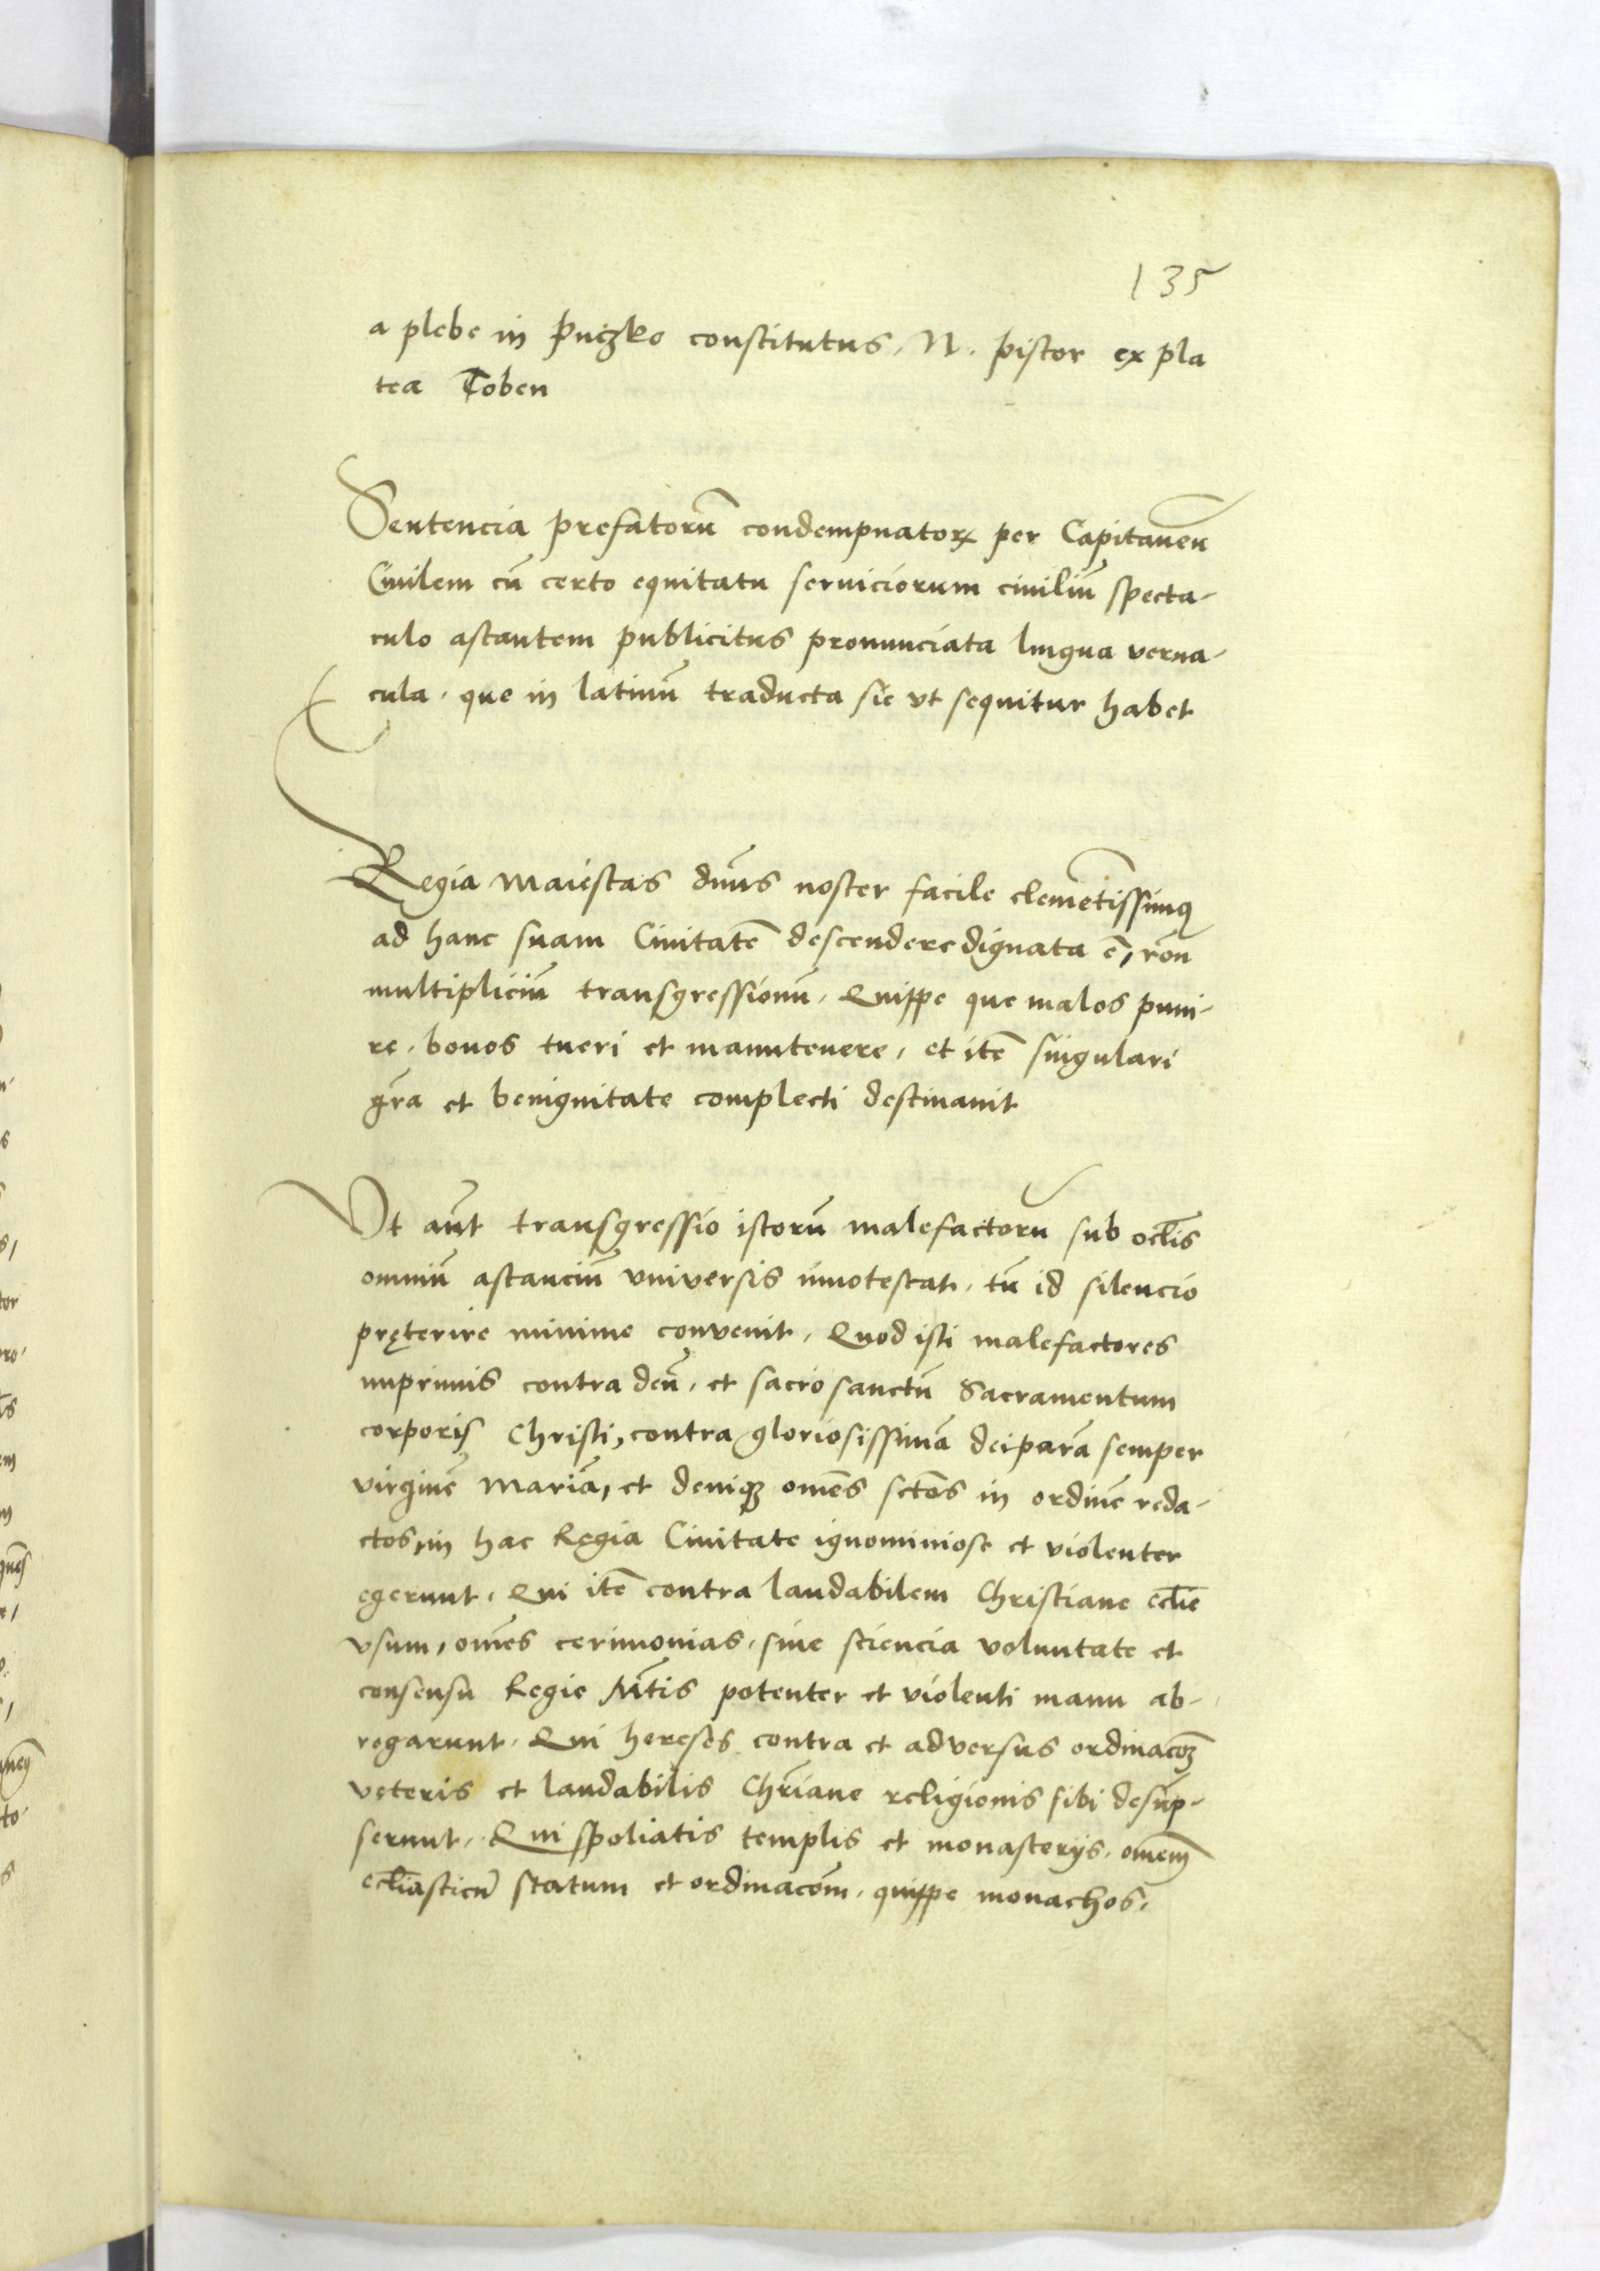 135
a plebe in Puczko constitutus, N. pistor ex pla
tea Toben
Sentencia prefatorū condempnatoꝝ per Capitaneū
Ciuilem cū certo equitatu seruiciorum ciuiliū specta-
culo astantem publicitus pronunciata lingua verna-
cula, que in latinū traducta sic vt sequitur habet
Regia Maiestas dn̄us noster facile clemētissimꝰ
ad hanc suam Ciuitatē descendere dignata ē, rōn
multipliciū transgressionū, Quippe que malos puni-
re, bonos tueri et manutenere, et itē singulari
grā et benignitate complecti destinauit
Vt aūt transgressio istorū malefactorū sub oclīs
omniū astanciū vniversis innotescat, tū id silencio
pręterire minime convenit, Quod isti malefactores
inprimis contra deū, et sacrosanctū Sacramentum
corporis Christi, contra gloriosissimā deiparā semper
virginē Mariā, et deniqꝫ omēs sctōs in ordinē reda-
ctos, in hac Regia Ciuitate ignominiose et violenter
egerunt, Qui itē contra laudabilem Christiane ecclīe
vsum, omēs cerimonias, sine sciencia voluntate et
consensu Regie Mtīs potenter et violenti manu ab-
rogarunt, Qui hereses contra et adversus ordinacōꝫ
veteris et laudabilis Chrīiane religionis sibi desūp-
serunt, Qui spoliatis templis et monasterijs, omēm
ecclīasticū statum et ordinacōm, quippe monachos,